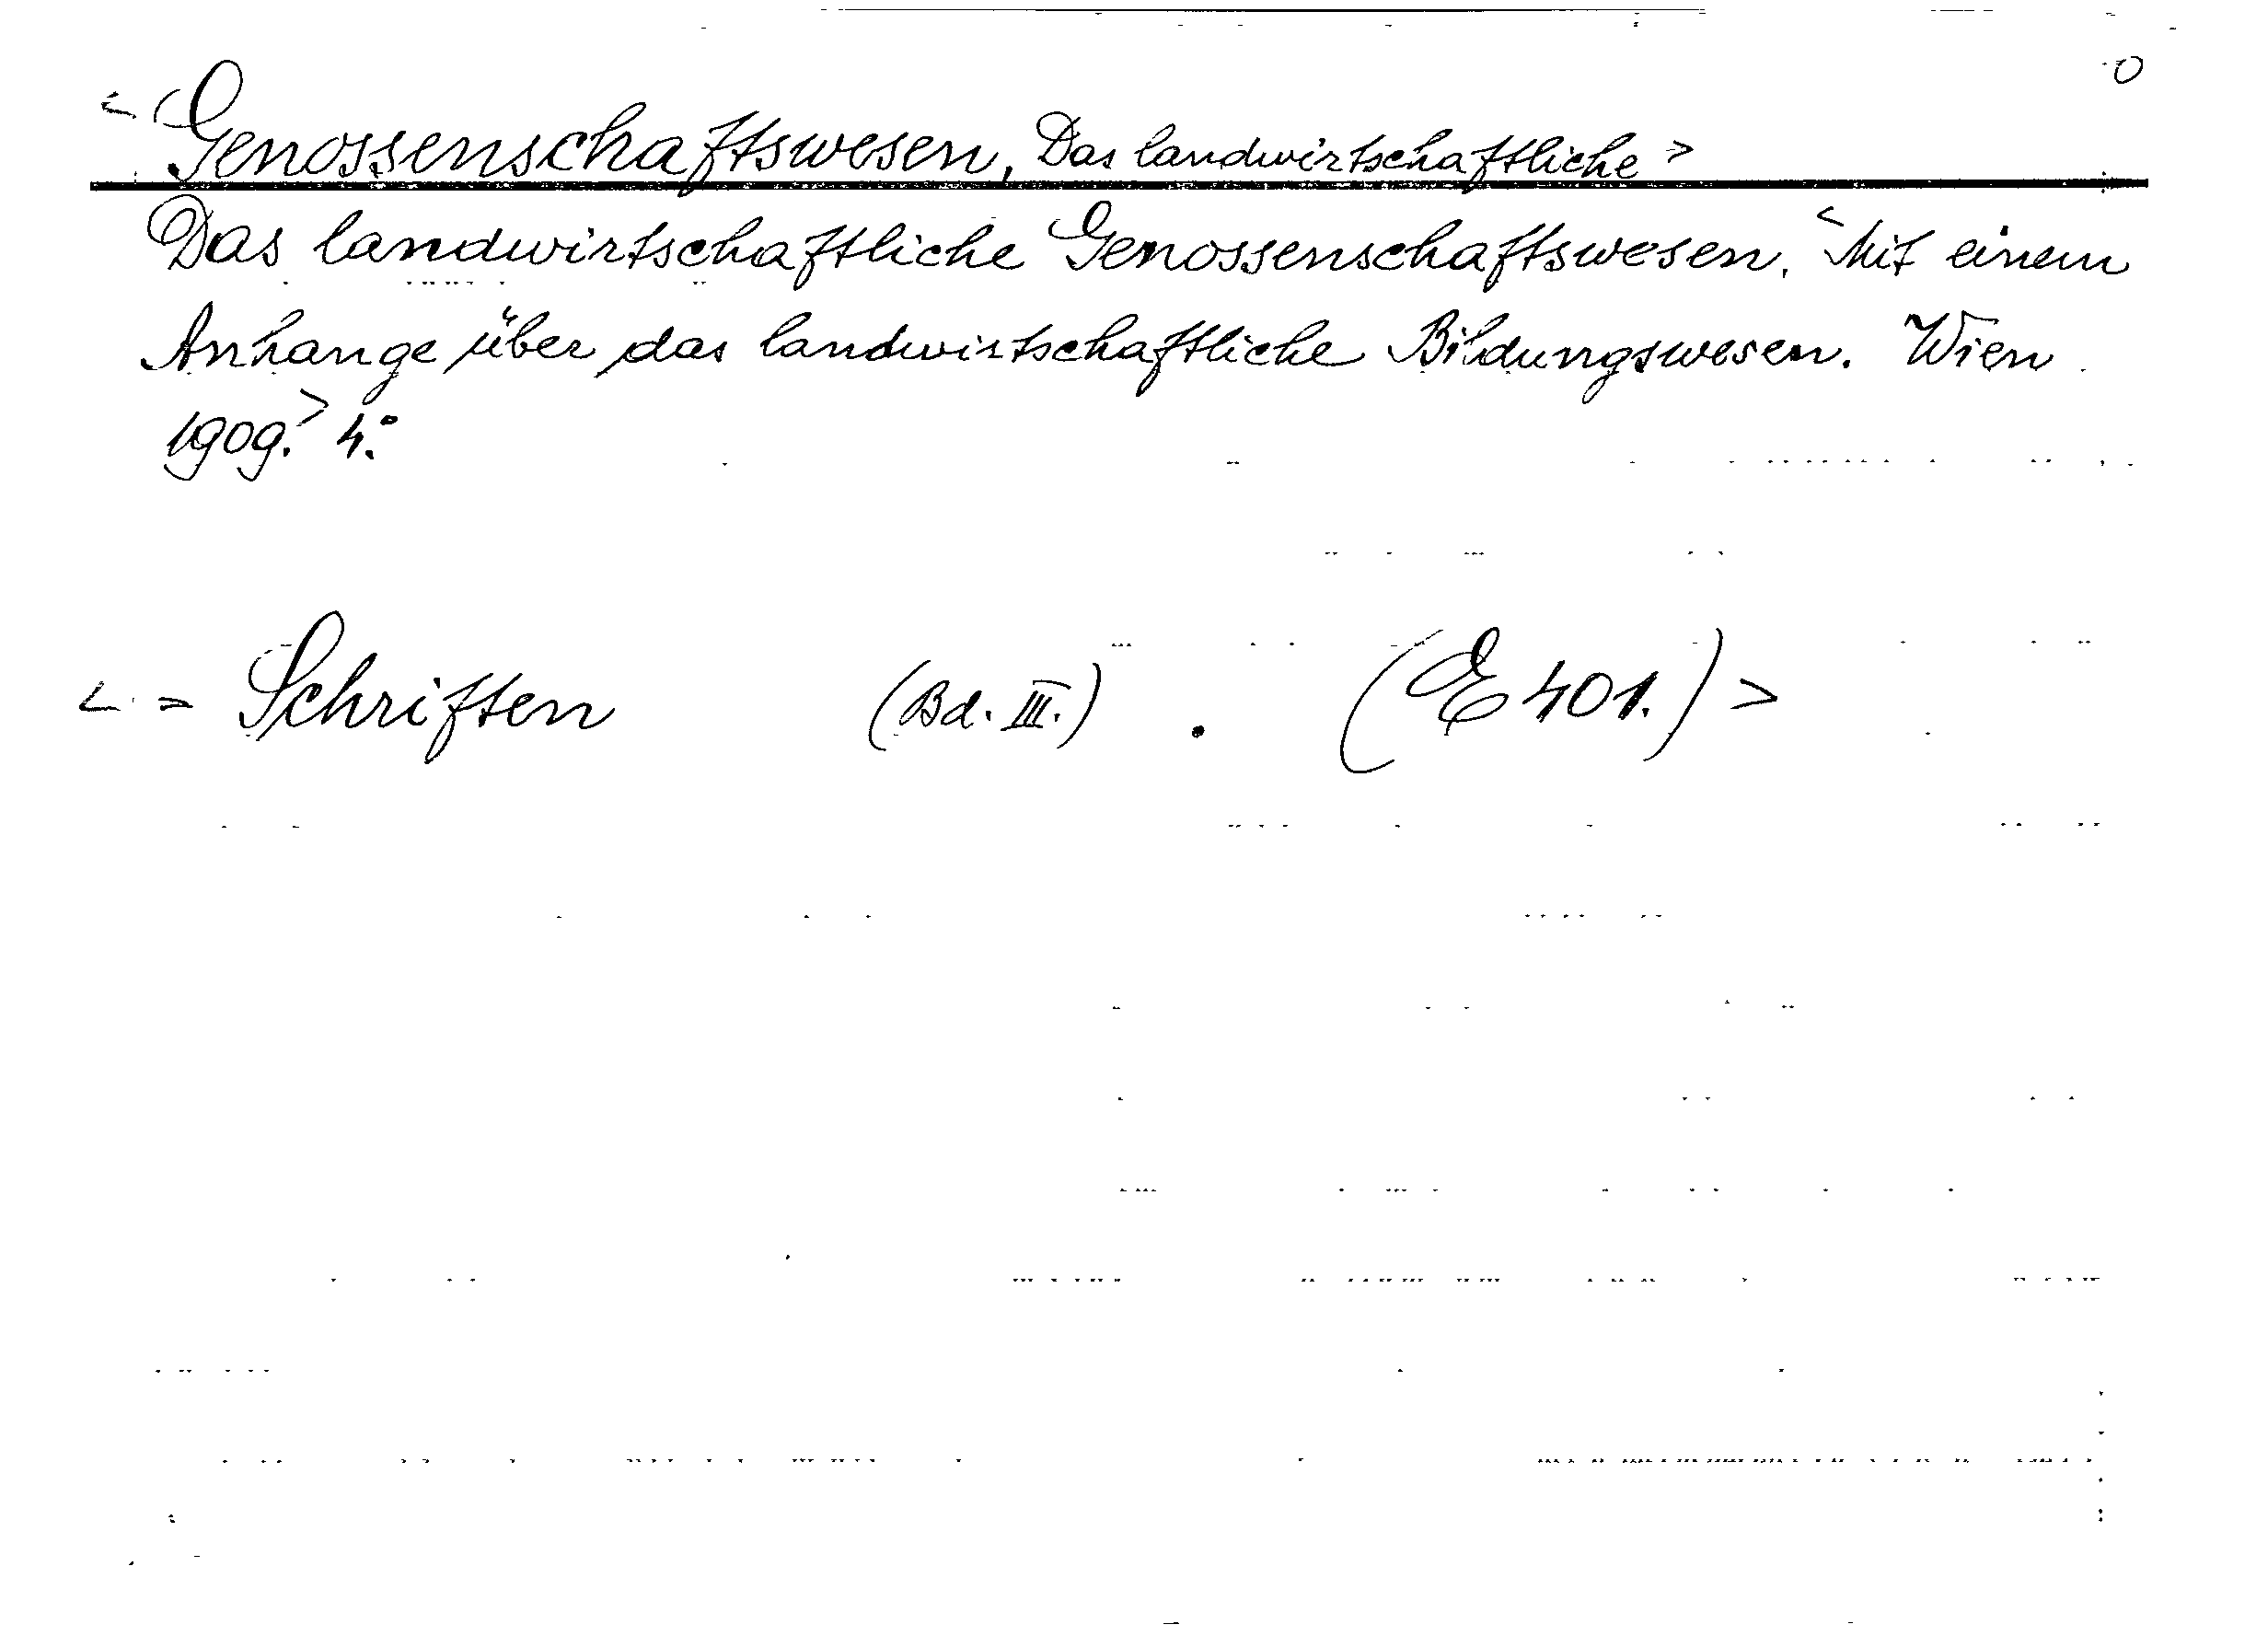 0
< Genossenschaftswesen, Das landwirtschaftliche >
Das landwirtschaftliche Genossenschaftswesen. < Mit einem
Anhange über das landwirtschaftliche Bildungswesen. Wien
1909. > 4.°
< = Schriften (Bd. III.) . (E 401.) >